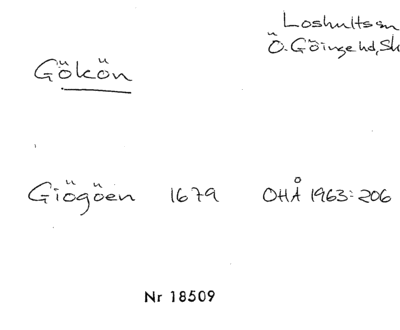 Loshults sn
Ö. Göinge hd, Sk
Gökön
Giögöen 1679 OHÅ 1963:206
Nr 18509